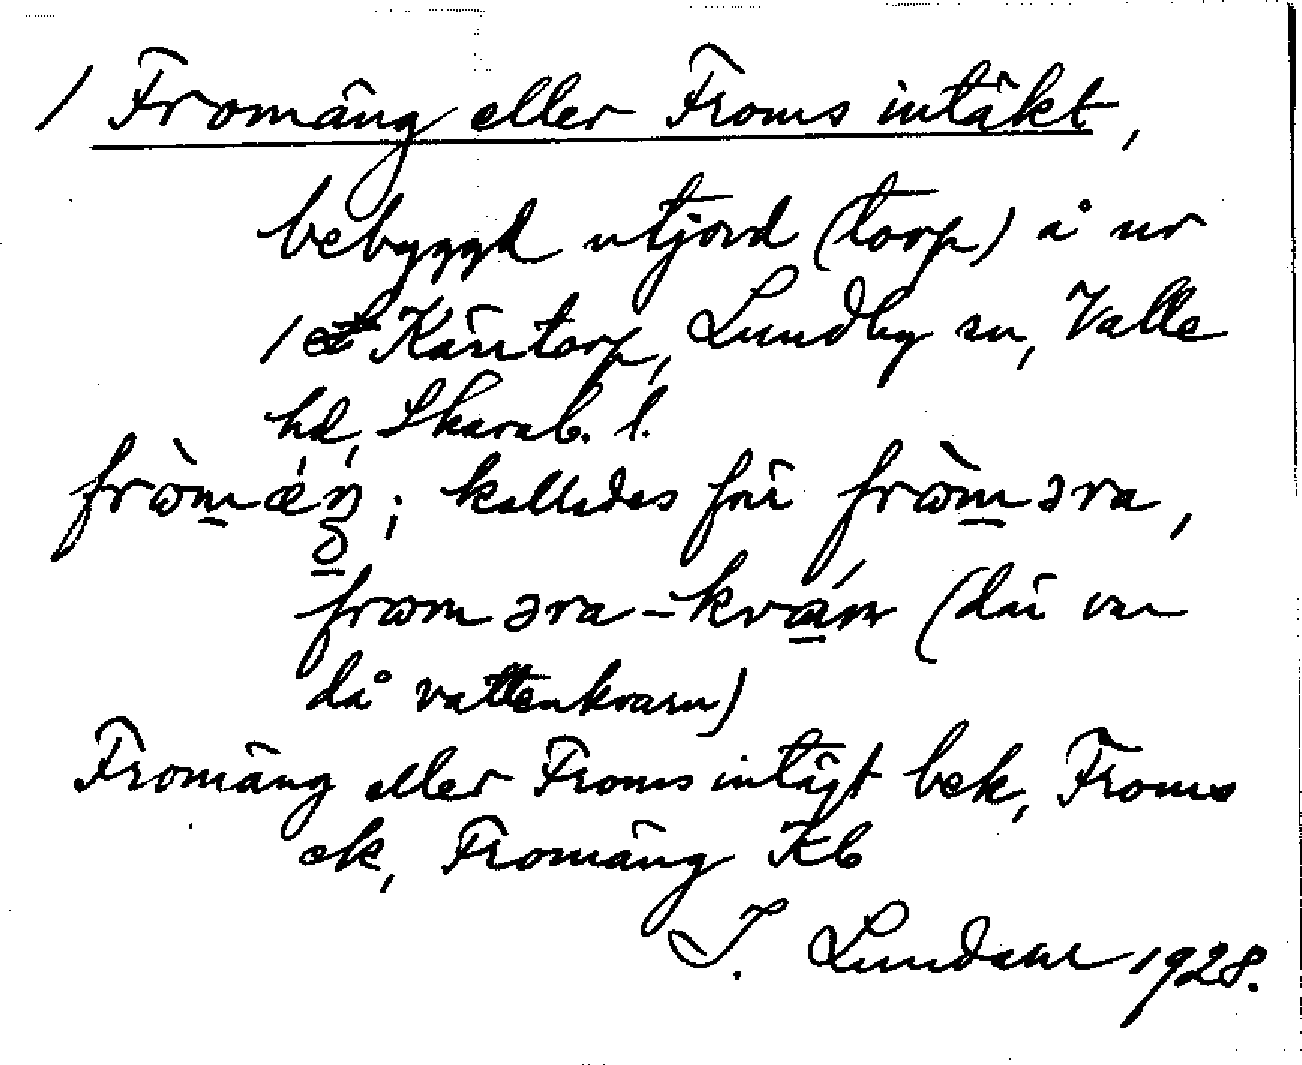 1 Fromäng eller Froms intäkt,
bebyggd utjord (torp) å nr
1 Käntorp, Lundby sn, Valle
hd, Skarab. l.
fròmæ̀ŋ; kallades förr fròməra,
froməra-kvá̱n (där var
då vattenkvarn)
Fromäng eller Froms intägt bek, Froms
ek, Fromäng Kb
I. Lundahl 1928.